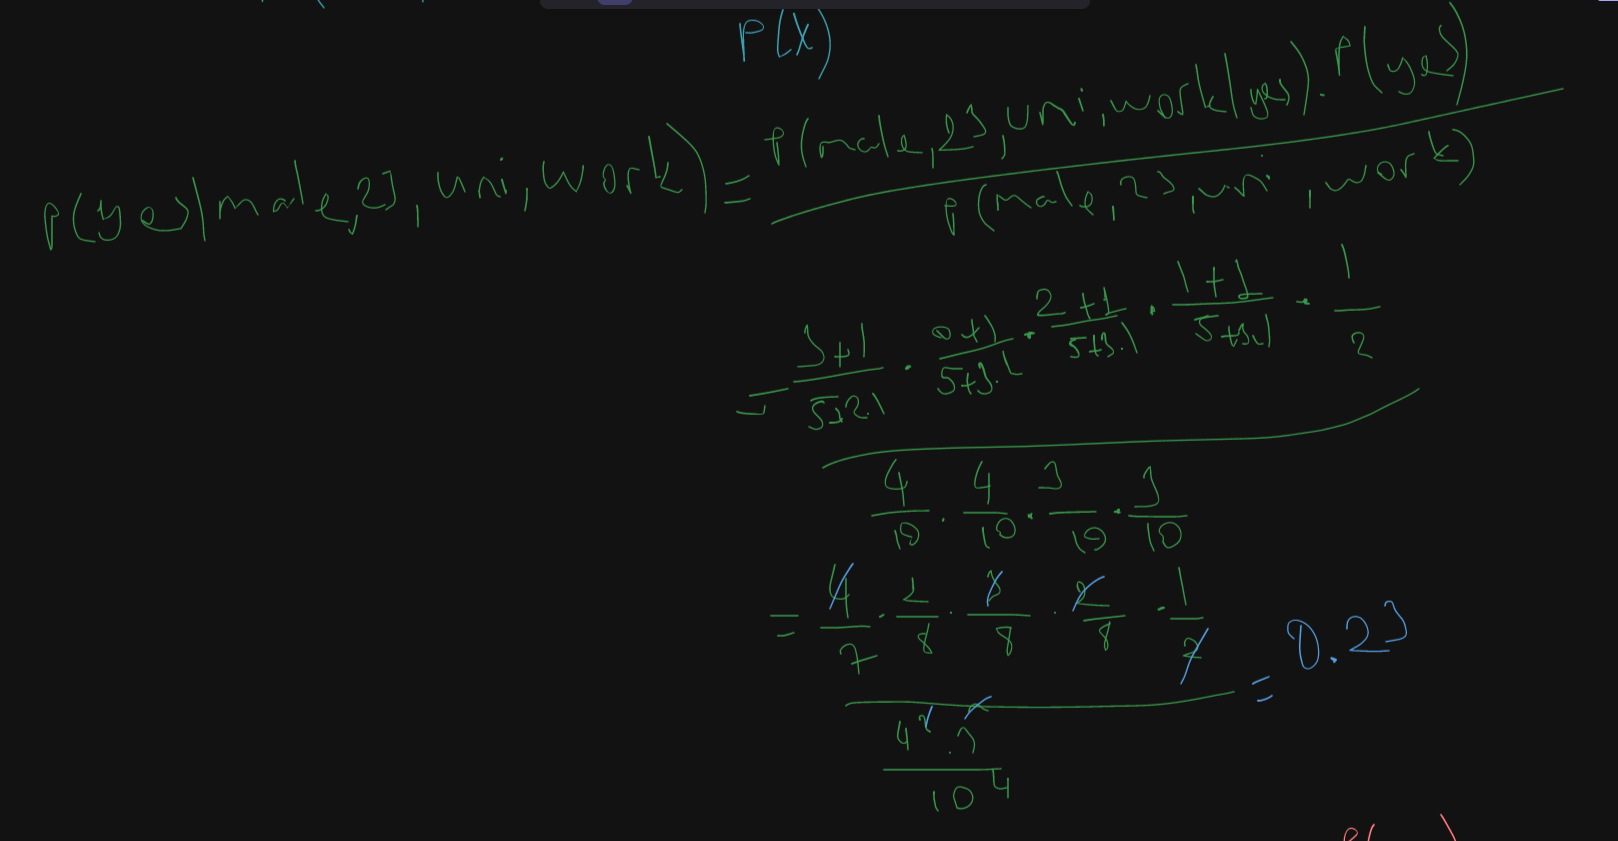 P(X)
P(yes|male,23,uni,work) = P(male,23,uni,work|yes).P(yes)
P(male,23,uni,work)
= 3+1/5+2.1 . 0+1/5+3.1 . 2+1/5+3.1 . 1+1/5+3.1 . 1/2
4/10 . 4/10 . 3/10 . 3/10
= 4/7 . 1/8 . 3/8 . 2/8 . 1/2 = 0.23
4² . 3²
10⁴